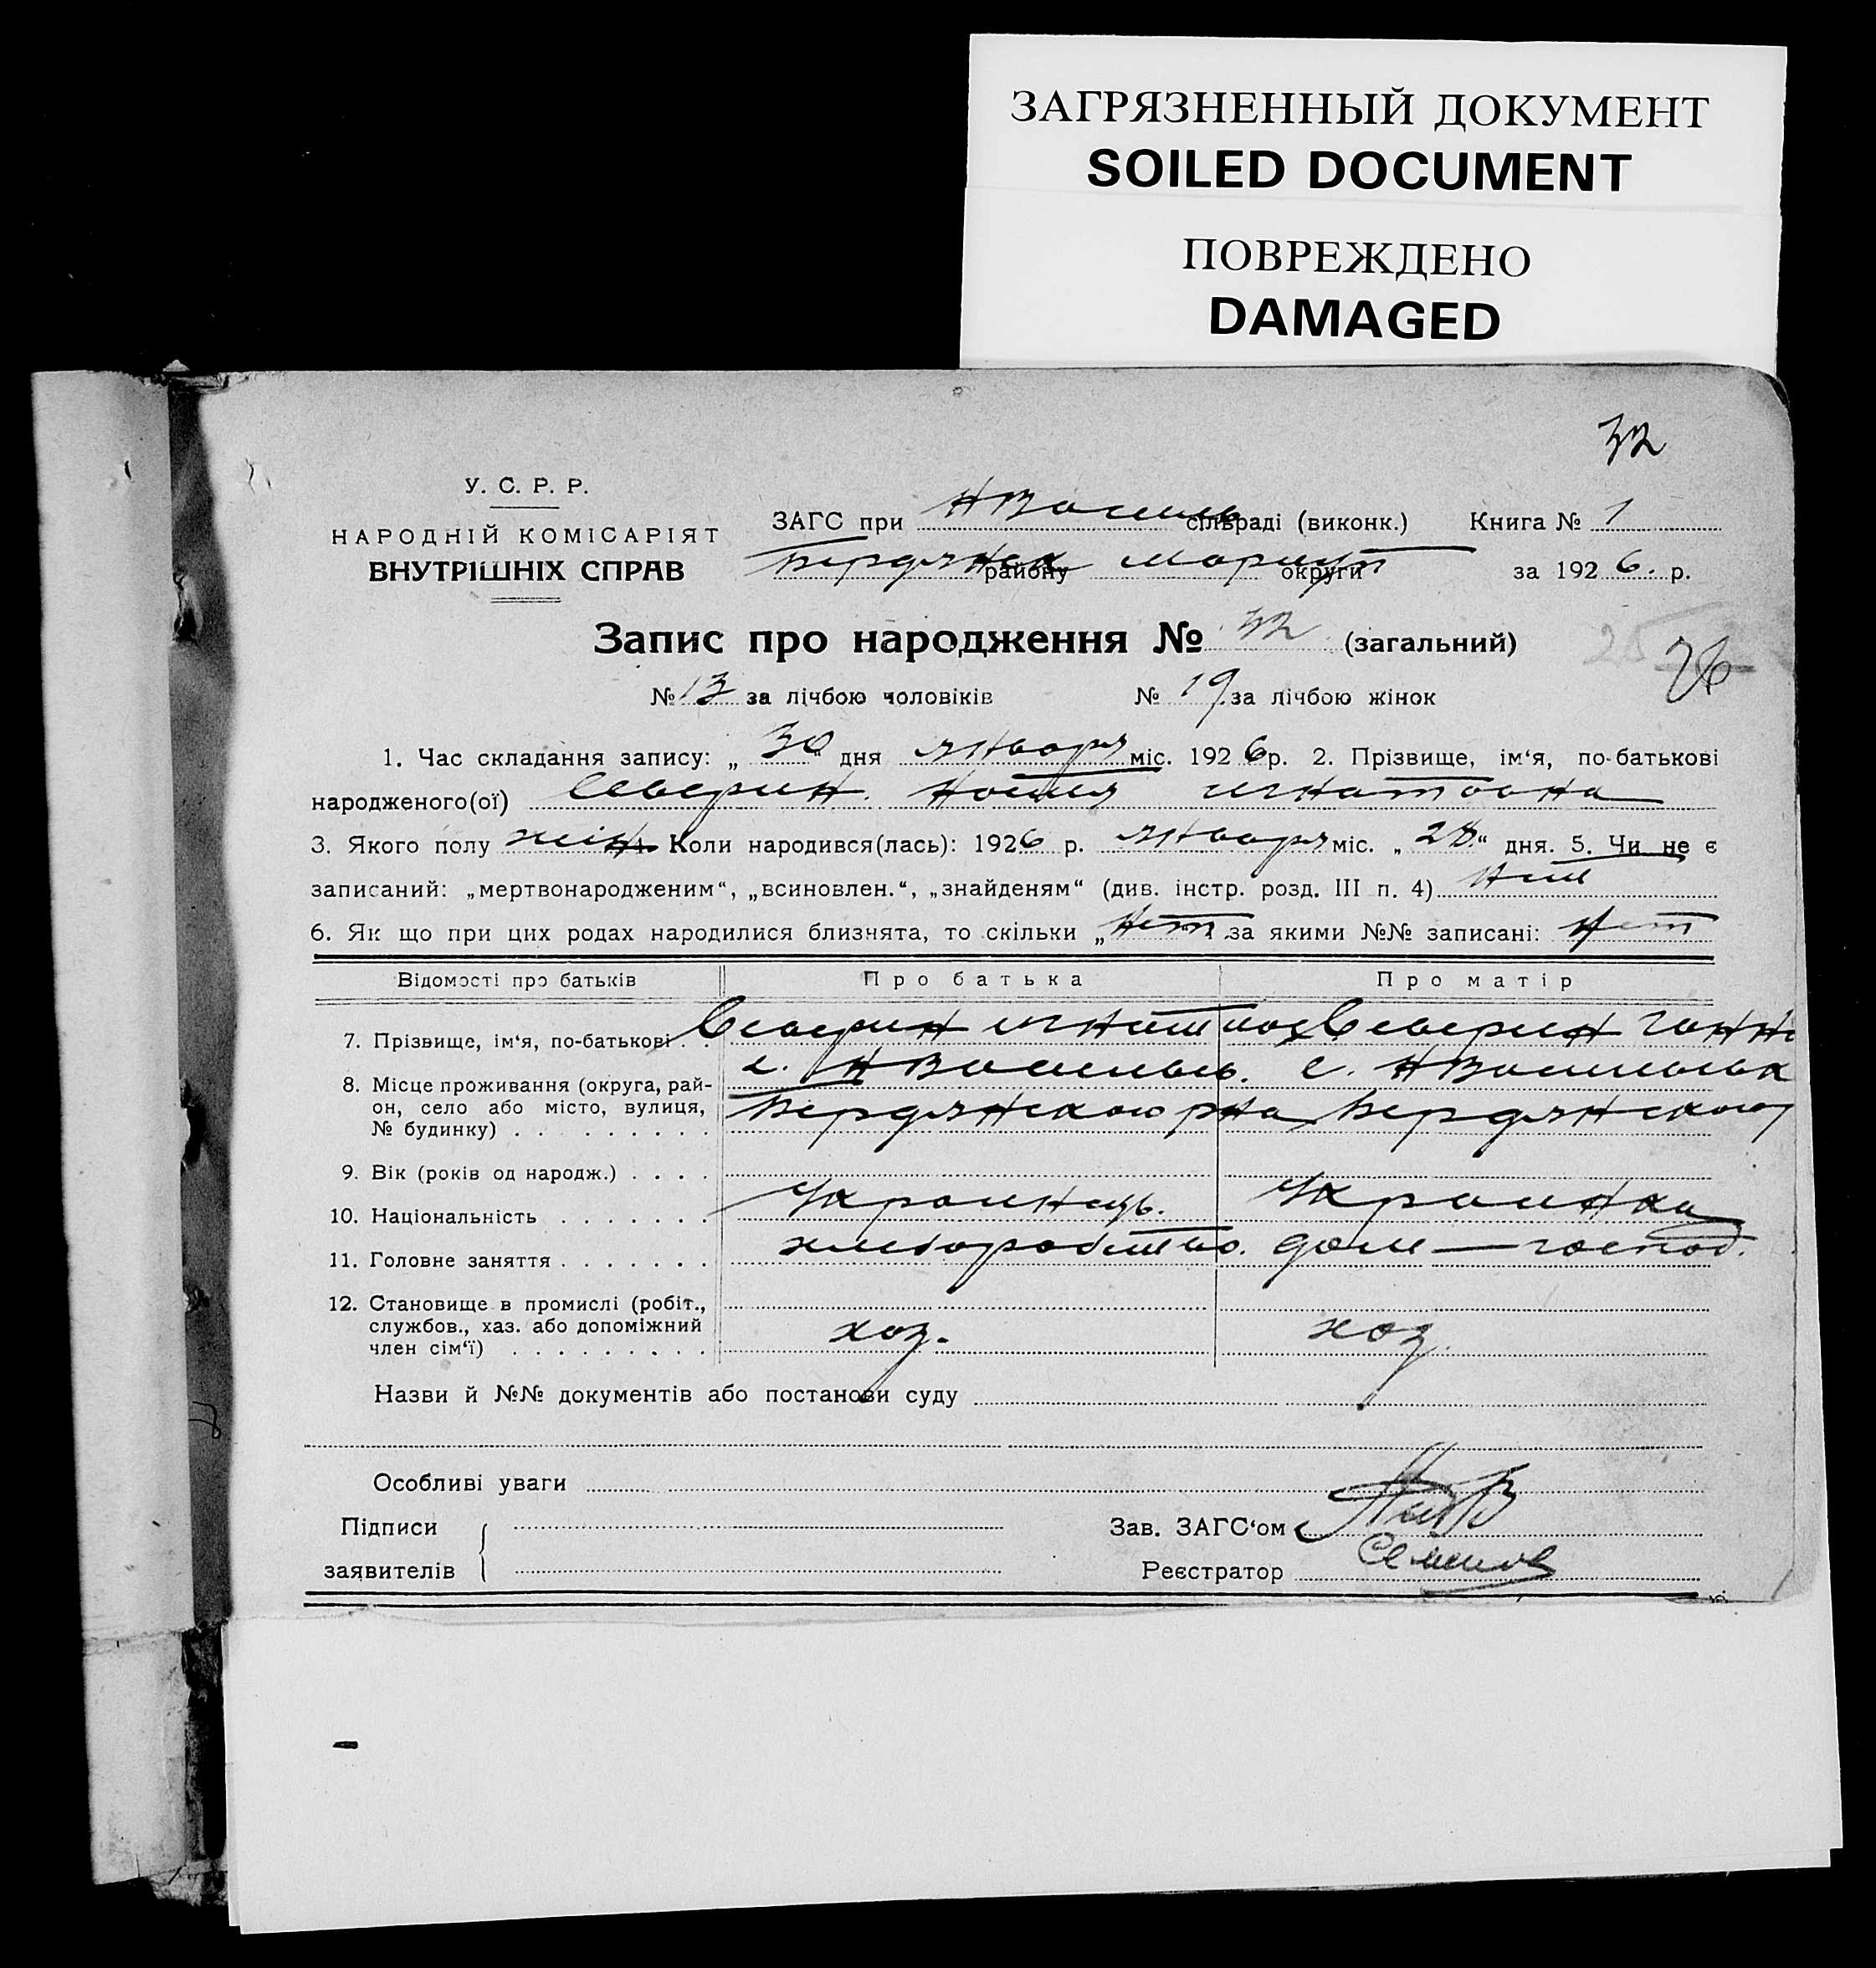 ЗАГРЯЗНЕННЫЙ ДОКУМЕНТ
SOILED DOCUMENT
ПОВРЕЖДЕНО
DAMAGED
32
У. С. Р. Р.
НАРОДНІЙ КОМІСАРІЯТ
ВНУТРІШНІХ СПРАВ
ЗАГС при НВасиль сільраді (виконк.) Книга № 1
Бердянск району Мариуп округи за 1926. р.
Запис про народження № 32 (загальний)
25 26
№ 13 за лічбою чоловіків № 19 за лічбою жінок
1. Час складання запису: „30“ дня января міс. 1926 р. 2. Прізвище, ім‘я, по-батькові
народженого(ої) Северин. Игнатовна
3. Якого полу жін. 4. Коли народився(лась): 1926 р. января міс. „28“ дня. 5. Чи не є
записаний: „мертвонародженим“, „всиновлен.“, „знайденям“ (див. інстр. розд. III п. 4)
6. Як що при цих родах народилися близнята, то скільки „Нет за якими №№ записані: Нет
Відомості про батьків Про батька Про матір
7. Прізвище, ім‘я, по-батькові . . Северин Игнат Северин Ганн
8. Місце проживання (округа, рай-
он, село або місто, вулиця,
№ будинку) . . . . . . . . .
с. НВасильев. с. НВасильевк
Бердянского рна Бердянского
9. Вік (років од народж.) . . . .
10. Національність . . . . . . . Украинець. Украинка
11. Головне заняття . . . . . . . хлеборобство. дом — господ.
12. Становище в промислі (робіт.,
службов., хаз. або допоміжний
член сім‘ї) . . . . . . . . . хоз. хоз.
Назви й №№ документів або постанови суду
Особливі уваги
Підписи
заявителів
Зав. ЗАГС‘ом
Реєстратор